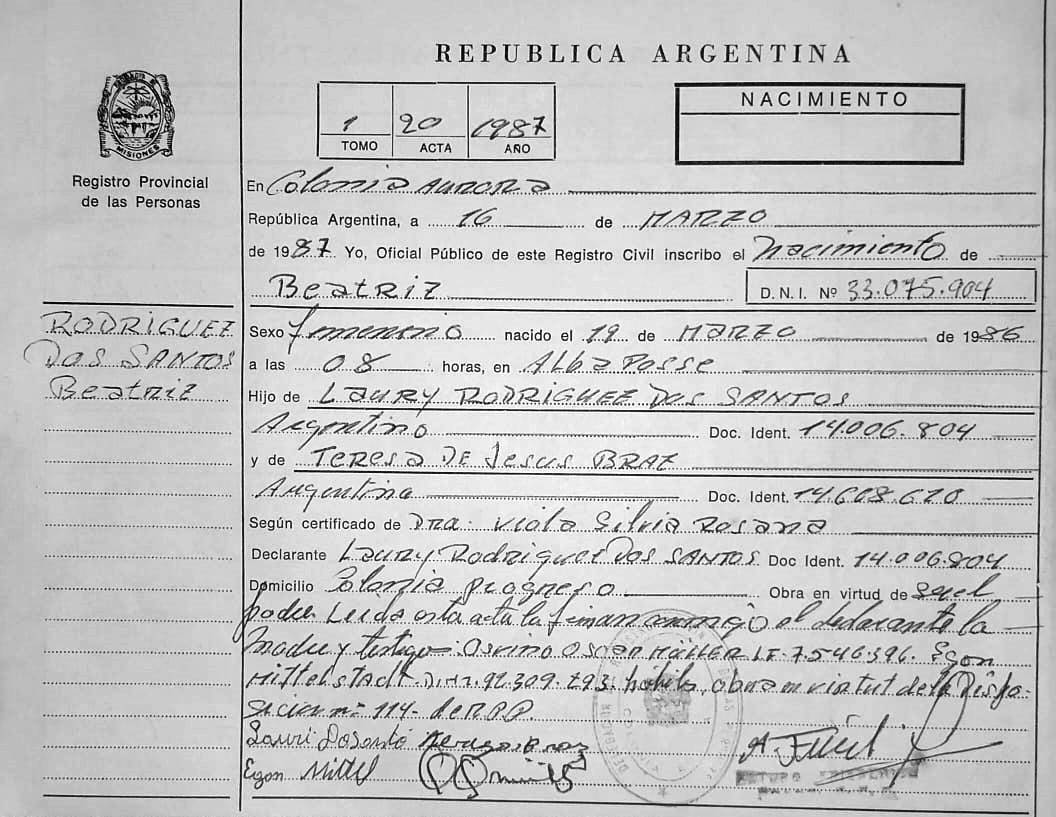 REPUBLICA ARGENTINA
MISIONES
Registro Provincial
de las Personas
1 20 1987
TOMO ACTA AÑO
NACIMIENTO
En Colonia Aurora
República Argentina, a 16 de MARZO
de 1987 Yo, Oficial Público de este Registro Civil inscribo el Nacimiento de
Beatriz D.N.I. Nº 33.075.904
RODRIGUEZ
DOS SANTOS
Beatriz
Sexo femenino nacido el 19 de MARZO de 1986
a las 08 horas, en Alba Posse
Hijo de LAURY RODRIGUEZ DOS SANTOS
Argentino Doc. Ident. 14.006.804
y de TERESA DE JESUS BRAZ
Argentina Doc. Ident. 14.608.620
Según certificado de Dra. Viola Silvia Rosana
Declarante Laury Rodriguez Dos SANTOS Doc Ident. 14.006.804
Domicilio Colonia progreso Obra en virtud de ser el
padre Leida esta acta la firman conmigo el declarante la
Madre y testigo Osvino Oscar MÜLLER LE. 7.546.396. Egon
Mittelstadt D.N.I. 92.309.293. hábiles, obra en virtut de la Dispo-
sicion nº 114-
Lauri Dosanto
Egon Mittel
A.